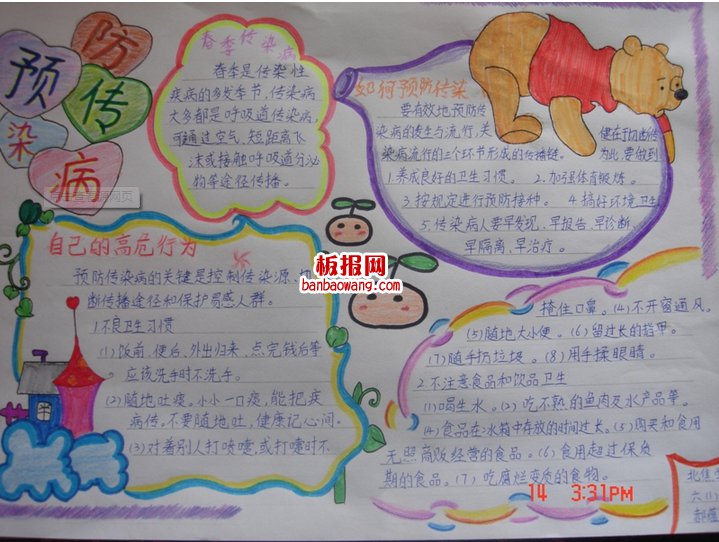 预防传染病
春季传染病
春季是传染性
疾病的多发季节,传染病
大多都是呼吸道传染病,
可通过空气.短距离飞
沫或接触呼吸道分泌
物等途径传播。
如何预防传染
要有效地预防传
染病的发生与流行,关
键在于切断传
染病流行的三个环节形成的传播链。
为此,要做到
1.养成良好的卫生习惯。 2.加强体育锻炼。
3.按规定进行预防接种。 4.搞好环境卫生
5.传染病人要早发现、早报告、早诊断、
早隔离、早治疗。
自己的高危行为
预防传染病的关键是控制传染源、切
断传播途径和保护易感人群。
1.不良卫生习惯
(1)饭前、便后、外出归来、点完钱后等
应该洗手时不洗手。
(2)随地吐痰。小小一口痰,能把疾
病传。不要随地吐,健康记心间。
(3)对着别人打喷嚏,或打嚏时不
掩住口鼻。(4)不开窗通风。
(5)随地大小便。(6)留过长的指甲。
(7)随手扔垃圾。(8)用手揉眼睛。
2.不注意食品和饮品卫生
(1)喝生水。(2)吃不熟的鱼肉及水产品等。
(4)食品在冰箱中存放的时间过长。(5)购买和食用
无照商贩经营的食品。(6)食用超过保质
期的食品。(7)吃腐烂变质的食物。
板报网
banbaowang.com
14 3:31PM
六(1)